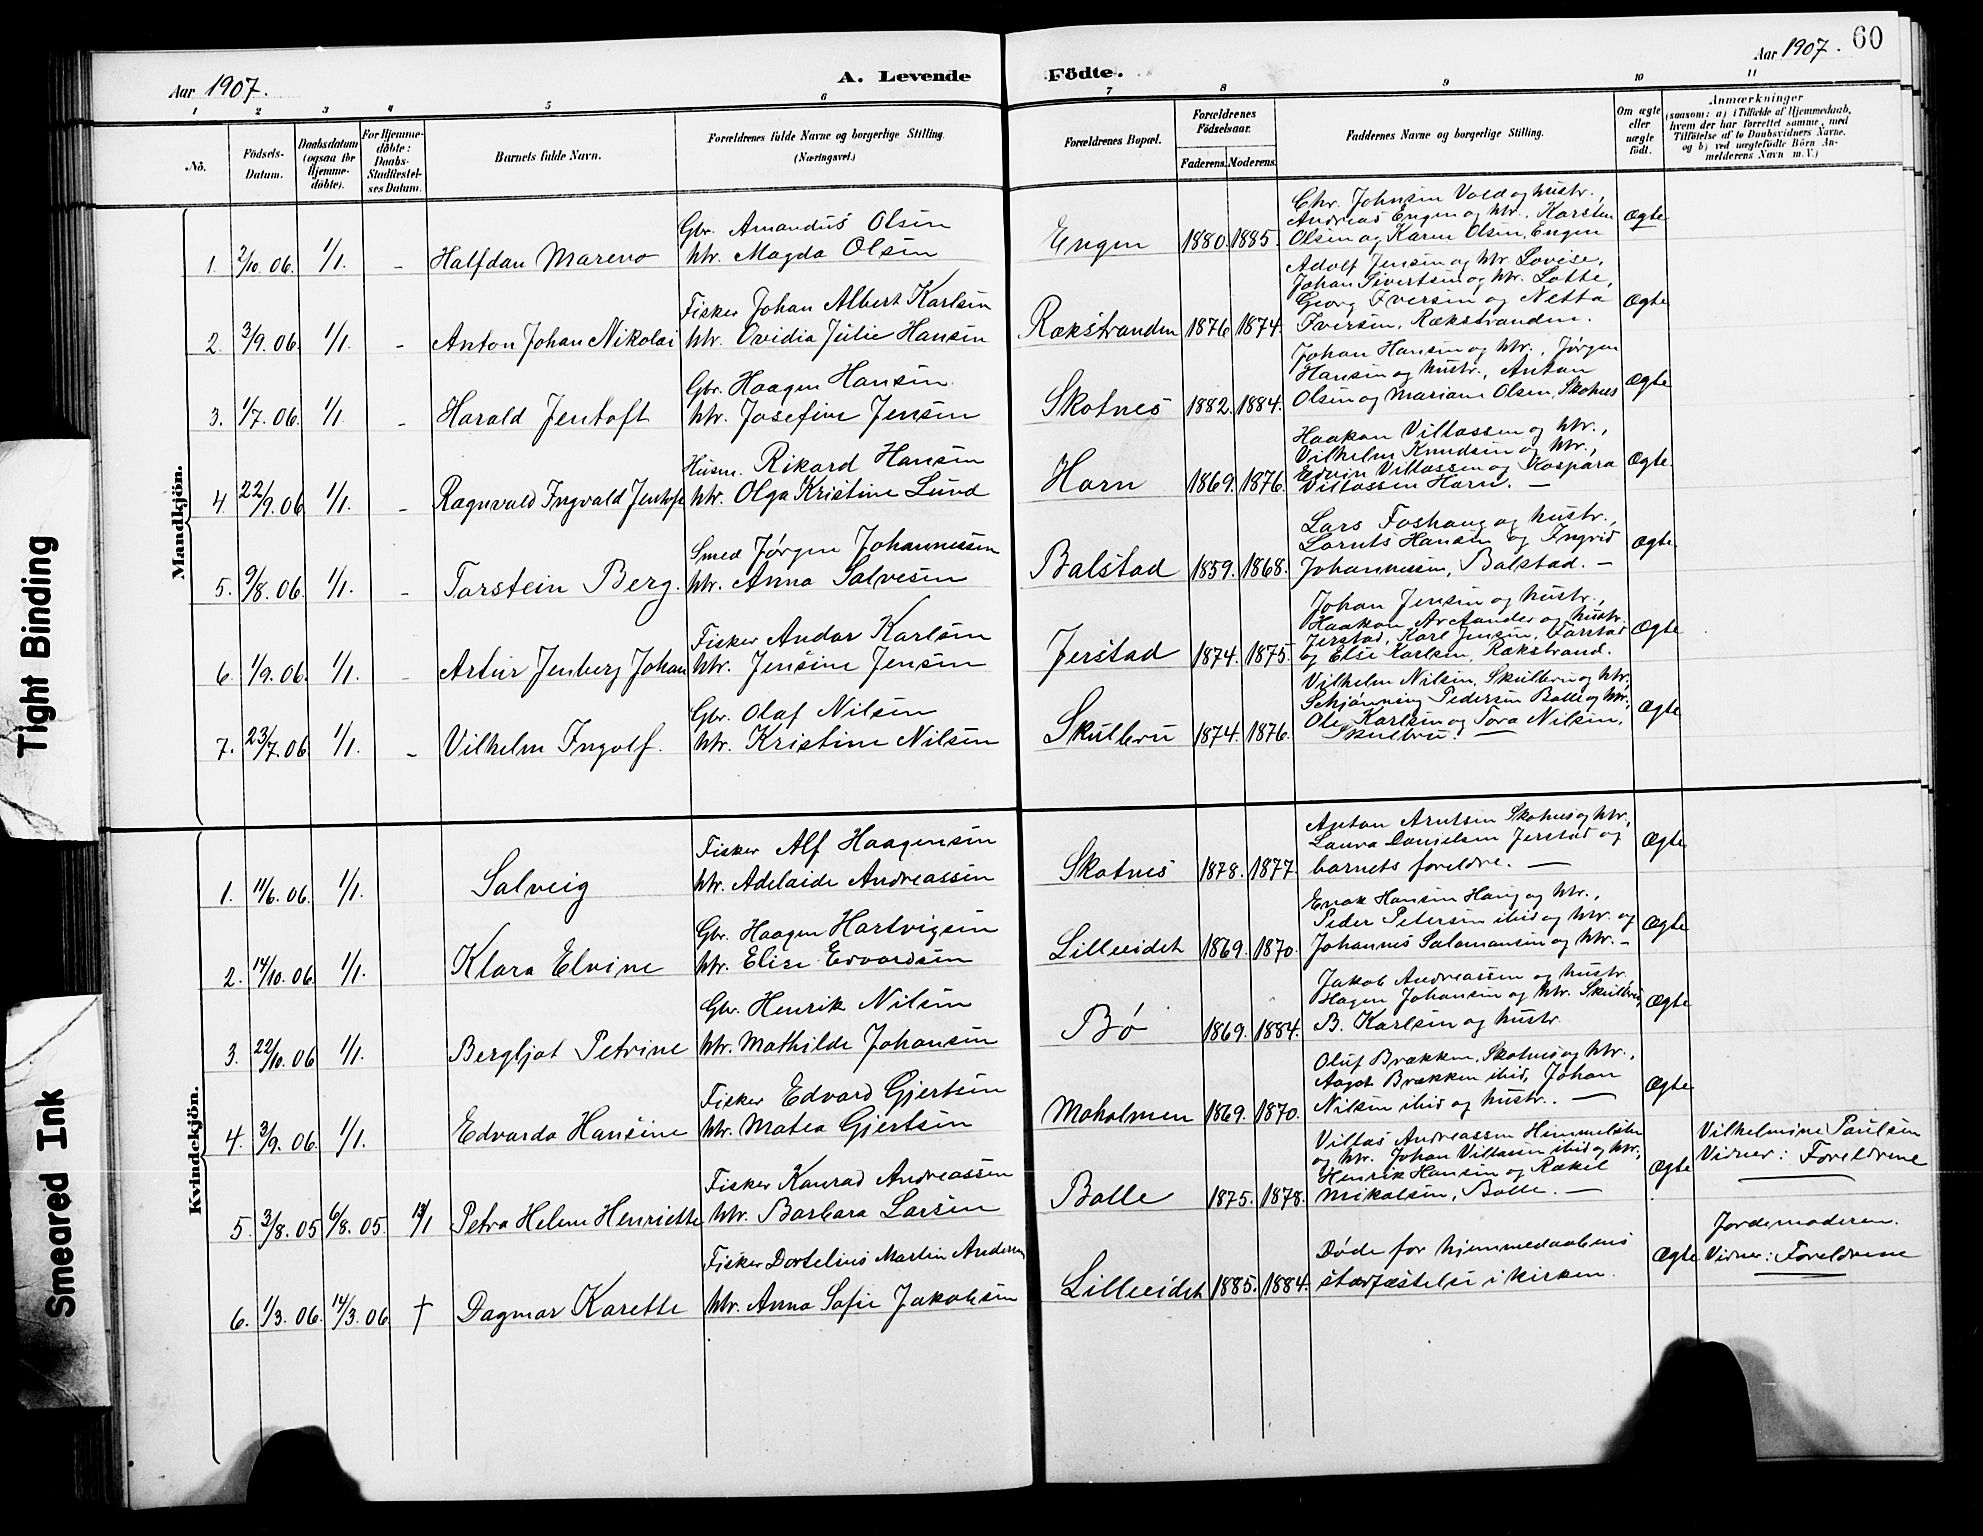 Aar 1907.
A. Levende Födte.
Aar 1907. 60
1 2 3 4 5 6 7 8 9 10 11
No.
Födsels-Datum.
Daabsdatum (ogsaa for Hjemmedöbte).
For Hjemmedöbte: Daabs-Stadfæstelses Datum.
Barnets fulde Navn.
Forældrenes fulde Navne og borgerlige Stilling. (Næringsvei.)
Forældrenes Bopæl.
Forældrenes Födselsaar.
Faderens. Moderens.
Faddernes Navne og borgerlige Stilling.
Om ægte eller uægte födt.
Anmærkninger
(saasom: a) i Tilfælde af Hjemmedaab, hvem der har forrettet samme, med Tilföielse af to Daabsvidners Navne, og b) ved uægtefödte Börn Anmelderens Navn m. V.)
Mandkjön.
1. 2/10. 06. 1/1. - Halfdan Mareno
Gbr. Amandus Olsen
htr. Magda Olsen
Engen 1880. 1885.
Chr. Johnsen Vold og hustr.,
Andreas Engen og htr., Karsten
Olsen og Karen Olsen, Engen
Ægte
2. 3/9. 06. 1/1. - Anton Johan Nikolai
Fisker Johan Albert Karlsen
htr. Ovidia Julie Hansen
Rækstranden 1876 1874.
Adolf Jensen og htr Lovise,
Johan Sivertsen og htr. Lotte,
Georg Iversen og Netta
Iversen, Rækstranden.
Ægte
3. 1/7. 06. 1/1. - Harald Jentoft
Gbr. Haagen Hansen.
htr. Josefine Jensen
Skotnes 1882. 1884.
Johan Hansen og htr., Jørgen
Hansen og hustr., Anton
Olsen og Mariane Olsen, Skotnes
Ægte
4. 22/9. 06. 1/1. - Ragnvald Ingvald Jentoft
Husm. Rikard Hansen
htr. Olga Kristine Lund
Horn 1869. 1876.
Haakon Villassen og htr.,
Vilhelm Knudsen og htr.,
Edvin Villassen og Kaspara
Villassen Horn. —
Ægte.
5. 9/8. 06. 1/1. - Torstein Berg.
Smed Jørgen Johannessen
htr. Anna Salvesen
Balstad 1859. 1868.
Lars Foshaug og hustr.,
Lornts Hansen og Ingrid
Johannessen, Balstad. —
Ægte
6. 1/9. 06. 1/1. - Artur Jenberg Johan
Fisker Andor Karlsen
htr. Jensine Jensen
Jerstad 1874. 1875.
Johan Jensen og hustr.,
Haakon Arctander og hustr.
Jerstad, Karl Jensen,
og Else Karlsen, Rækstrand.
Ægte
7. 23/7. 06. 1/1. - Vilhelm Ingolf.
Gbr. Olaf Nilsen
htr. Kristine Nilsen
Skulbru 1874. 1876.
Vilhelm Nilsen, Skulbru og htr.
Schjønning Pedersen Bolle og htr.,
Ole Karlsen og Tora Nilsen,
Skulbru. —
Ægte
Kvindekjön.
1. 14/6. 06. 1/1. Solveig
Fisker Alf Haagensen
htr. Adelaide Andreassen
Skotnes 1878. 1877.
Anton Arntsen Skotnes og htr.,
Laura Danielsen Jerstad og
barnets foreldre. —
Ægte
2. 14/10. 06 1/1. Klara Elvine
Gbr. Haagen Hartvigsen
htr. Elise Edvardsen
Lilleeidet 1869. 1870.
Enok Hansen Haug og htr.,
Peder Petersen ibid og htr. og
Johannes Salamonsen og htr. -
Ægte
3. 22/10. 06 1/1. Bergljot Petrine
Gbr. Henrik Nilsen
htr. Mathilde Johansen
Bø 1869. 1884.
Jakob Andreassen og hustr.
Hagen Johansen og htr. Skulbru,
B. Karlsen og hustr.
Ægte
4. 3/9. 06. 1/1. Edvarda Hansine
Fisker Edvard Gjertsen
htr. Matea Gjertsen
Moholmen 1869. 1870.
Oluf Brækken, Skotnes og htr.,
Aagot Brækken ibid, Johan
Nilsen ibid og hustr. —
Ægte
5. 3/8. 05 6/8. 05. 13/1 Petra Helene Henriette
Fisker Konrad Andreassen
htr. Barbara Larsen
Bolle 1875. 1878.
Villas Andreassen
og htr. Johan Villassen ibid og htr.,
Henrik Hansen og Rakel
Mikalsen, Bolle. —
Ægte
Vilhelmine Paulsen
Vidner: Foreldrene
6. 1/3. 06. 14/3. 06 † Dagmar Karette
Fisker Dortelius Martin Andersen
htr. Anna Sofie Jakobsen
Lilleeidet 1885. 1884.
Døde før hjemmedaabens
stadfæstelse i kirken.
Ægte
Jordemoderen.
Vidner: Foreldrene
Tight Binding
Smeared Ink